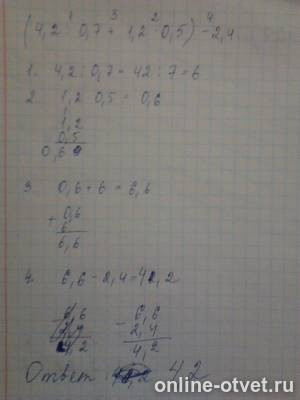 1 3 2 4
(4,2 : 0,7 + 1,2 · 0,5) - 2,4
1. 4,2 : 0,7 = 42 : 7 = 6
2. 1,2 · 0,5 = 0,6
1,2
0,5
0,60
3. 0,6 + 6 = 6,6
+ 0,6
6
6,6
4. 6,6 - 2,4 = 4,2
6,6 - 6,6
2,4 2,4
4,2 4,2
Ответ 4,2
online-otvet.ru